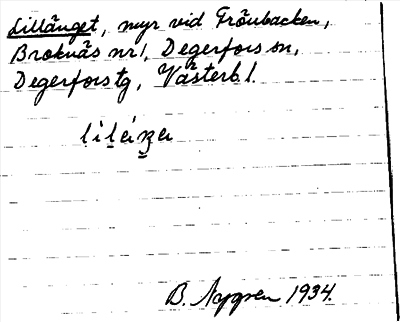 Lillänget, myr vid Grönbacken,
Broknäs nr 1, Degerfors sn,
Degerfors tg, Västerb l.
B. Nygren 1934.